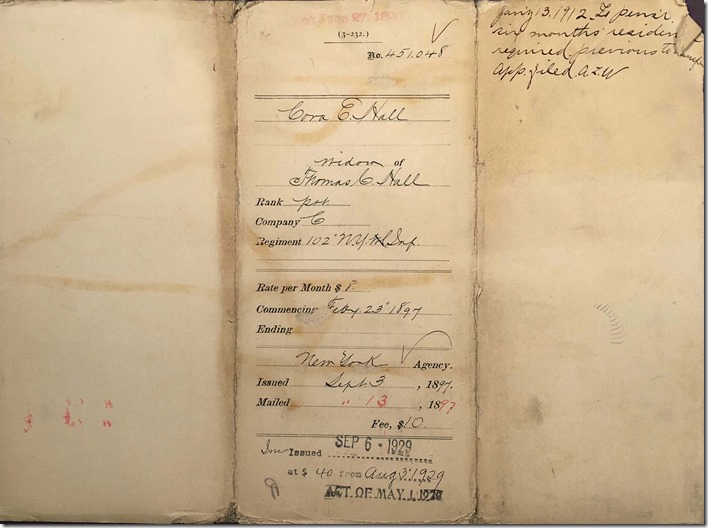 June 27, 1897
(3-232.)
No. 451.048
Cora E. Hall
widow of
Thomas C. Hall
Rank pvt.
Company C
Regiment 102" N.Y. Inf.
Rate per Month $ 8.
Commencing Feby. 23" 1897
Ending
New York Agency.
Issued Sept. 3, 1897.
Mailed " 13, 1897
Fee, $10.
Issued SEP 6 - 1929
at $ 40 from Aug 3" 1929
ACT OF MAY 1
Jan'y 13. 1912
six months' residence
required previous to
App. filed.